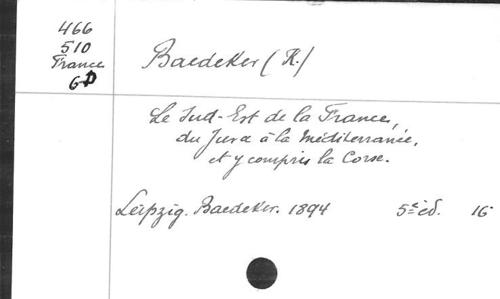 466
510
France
6
Baedeker (K.)
Le Sud-Est de la France,
du Jura à la Méditerranée,
et y compris la Corse.
Leipzig. Baedeker. 1894 5e éd. 16